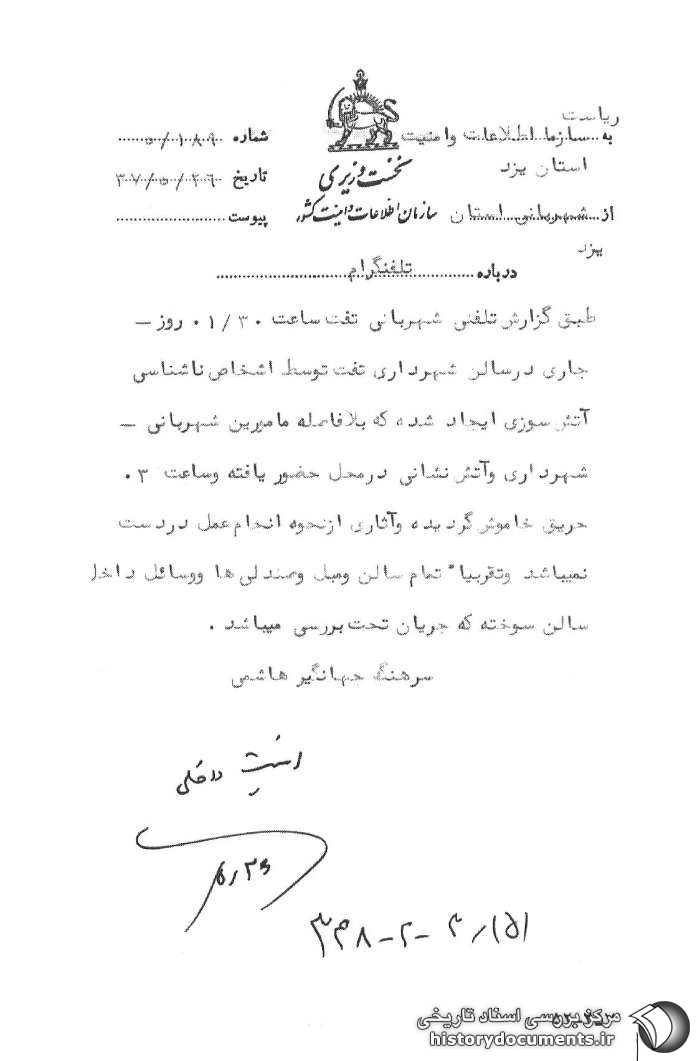 ریاست
به سازمان اطلاعات و امنیت
استان یزد
از شهربانی استان
یزد
نخست وزیری
سازمان اطلاعات و امنیت کشور
شماره ۵/۱۸۹
تاریخ ۳۷/۵/۲۶
پیوست
درباره تلفنگرام
طبق گزارش تلفنی شهربانی تفت ساعت ۰۱/۳۰ روز –
جاری درسالن شهرداری تفت توسط اشخاص ناشناسی
آتش سوزی ایجاد شده که بلافاصله مامورین شهربانی –
شهرداری وآتش نشانی درمحل حضور یافته وساعت ۰۳
حریق خاموش گردیده وآثاری ازنحوه انجام عمل دردست
نمیباشد وتقریبا" تمام سالن ومبل وصندلی ها ووسائل داخل
سالن سوخته که جریان تحت بررسی میباشد .
سرهنگ جهانگیر هاشمی
امنیت داخلی
۵/۲۶
مرکز بررسی اسناد تاریخی
historydocuments.ir